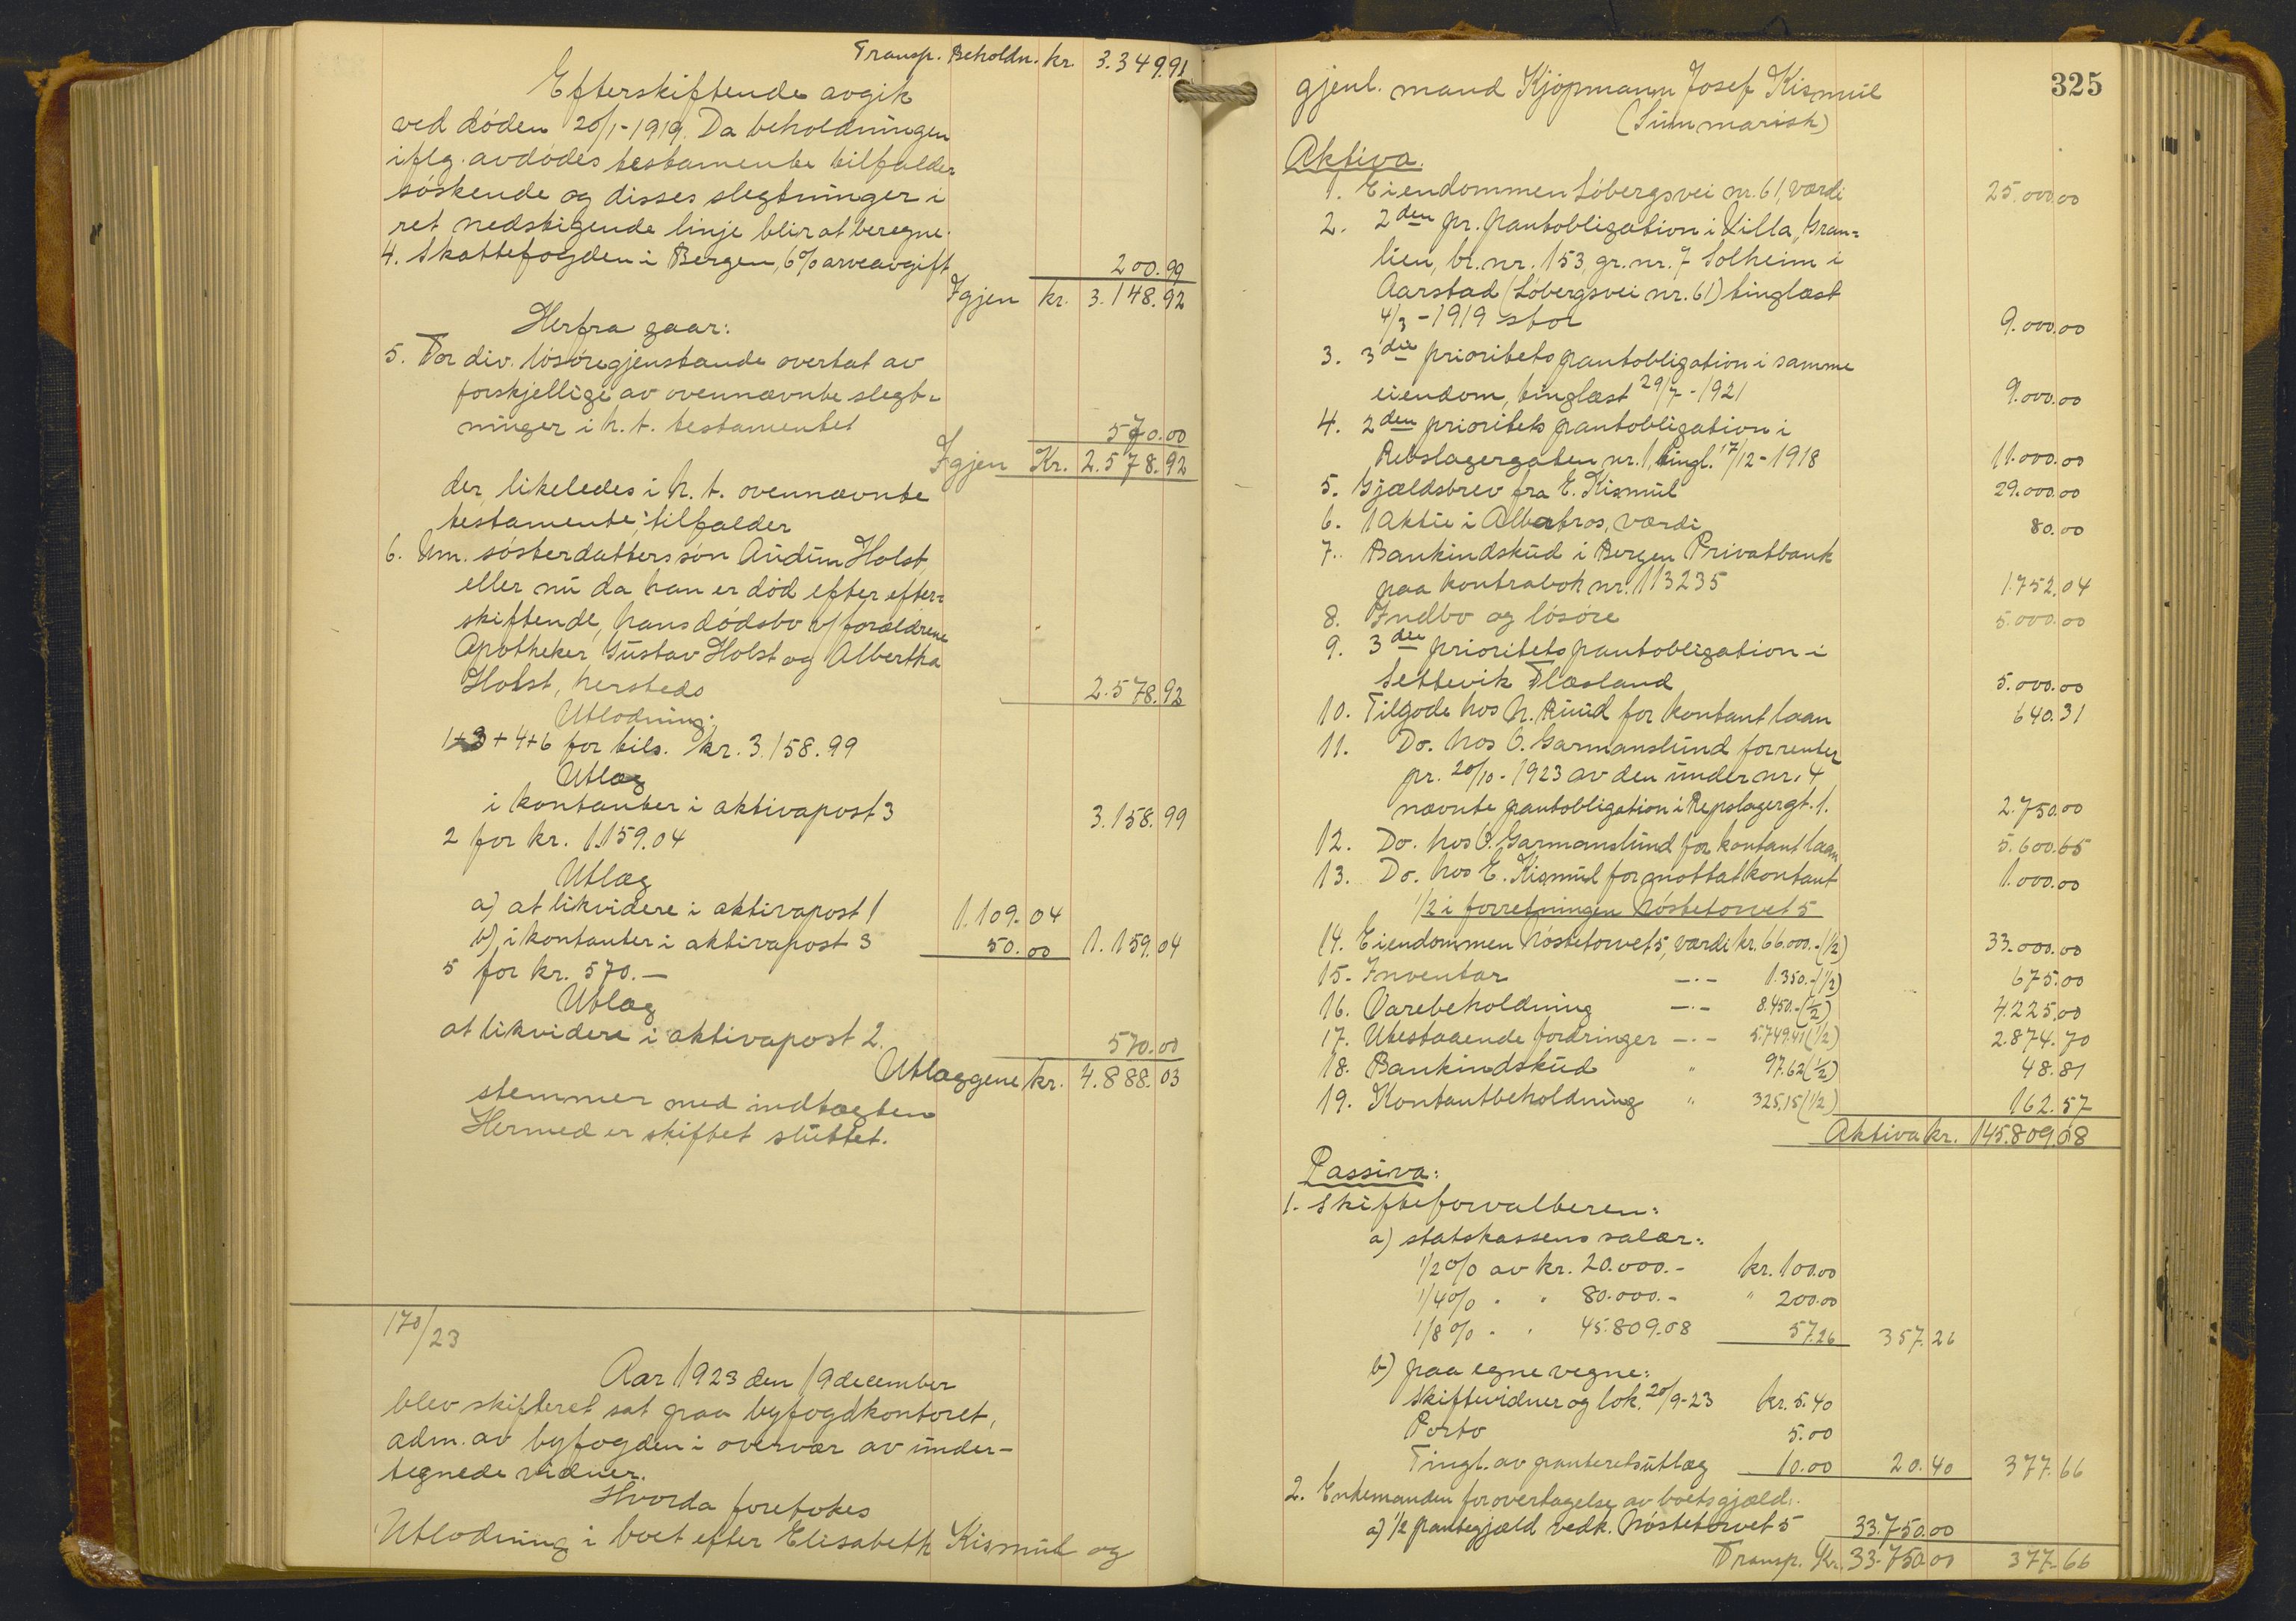 Transp. Beholdn. kr. 3.349.91
Efterskiftende avgik
ved döden 20/1-1919. Da beholdningen
iflg. avdödes testamente tilfalder
söskende og disses slegtninger i
ret nedstigende linje blir at beregne.
4. Skattefogden i Bergen, 6% arveavgift 200.99
Igjen kr. 3.148.92
Herfra gaar:
5. For div. lösöregjenstande overtat av
forskjellige av ovennævnte slegt-
ninger i h.t. testamentet 570.00
Igjen Kr. 2.578.92
der likeledes i h.t. ovennævnte
testamente tilfalder
6. Um. sösterdatters sön Audun Holst,
eller nu da han er död efter efter=
skiftende, hans dödsbo v/ forældrene
Apotheker Gustav Holst og Albertha
Holst, hersteds 2.578.92
Utlodning:
1+3+4+6 for tils. kr. 3.158.99
Utlæg
i kontanter i aktivapost 3 3.158.99
2 for kr. 1.159.04
Utlæg
a) at likvidere i aktivapost 1 1.109.04
b) i kontanter i aktivapost 3 50.00 1.159.04
5 for kr. 570.—
Utlæg
at likvidere i aktivapost 2. 570.00
Utlæggene kr. 4.888.03
stemmer med indtægten
Hermed er skiftet sluttet.
170/23
Aar 1923 den 19 december
blev skifteret sat paa byfogdkontoret,
adm. av byfogden i overvær av under-
tegnede vidner.
Hvorda foretokes
Utlodning i boet efter Elisabeth Kismul og
325
gjenl. mand Kjöpmann Josef Kismul
(Summarisk)
Aktiva.
1. Eiendommen Löbergsvei nr. 61, værdi 25.000.00
2. 2den pr. pantobligation i Villa „Gran=
lien, br. nr. 153, gr. nr. 7 Solheim i
Aarstad (Löbergsvei nr. 61) tinglæst
4/3-1919 stor 9.000.00
3. 3die prioritets pantobligation i samme
eiendom, tinglæst 29/7-1921 9.000.00
4. 2den prioritets pantobligation i
Rebslagergaten nr. 1, tingl. 17/12-1918 11.000.00
5. Gjældsbrev fra E. Kismul 29.000.00
6. 1 Aktie i Albatros, værdi 80.00
7. Bankindskud i Bergen Privatbank
paa kontrabok nr. 113235 1.752.04
8. Indbo og lösöre 5.000.00
9. 3die prioritets pantobligation i
Settevik Flæsland 5.000.00
10. Tilgode hos N. Ruud for kontant laan 640.31
11. Do. hos O. Garmanslund for renter
pr. 20/10-1923 av den under nr. 4
nævnte pantobligation i Repslagergt. 1. 2.750.00
12. Do. hos O. Garmanslund for kontant laan 5.600.65
13. Do. hos E. Kismul for mottat kontant 1.000.00
1/2 i forretningen Nöstetorvet 5
14. Eiendommen Nöstetorvet 5, værdi kr. 66.000.-(1/2) 33.000.00
15. Inventar —.— 1.350.-(1/2) 675.00
16. Varebeholdning —.— 8.450.-(1/2) 4.225.00
17. Utestaaende fordringer —.— 5.749.41 (1/2) 2.874.70
18. Bankindskud " 97.62 (1/2) 48.81
19. Kontantbeholdning " 325,15 (1/2) 162.57
Aktiva kr. 145.809.08
Passiva:
1. Skifteforvalteren:
a) statskassens salær:
1/2% av kr. 20.000.- kr. 100.00
1/4% " " 80.000.- " 200.00
1/8% " " 45.809.08 57.26 357.26
b) paa egne vegne:
Skiftevidner og lok. 20/9-23 kr. 5.40
Porto 5.00
Tingl. av panteretsutlæg 10.00 20.40 377.66
2. Enkemanden for overtagelse av boets gjæld:
a) 1/2 pantegjæld vedk. Nöstetorvet 5 33.750.00
Transp. Kr. 33.750.00 377.66